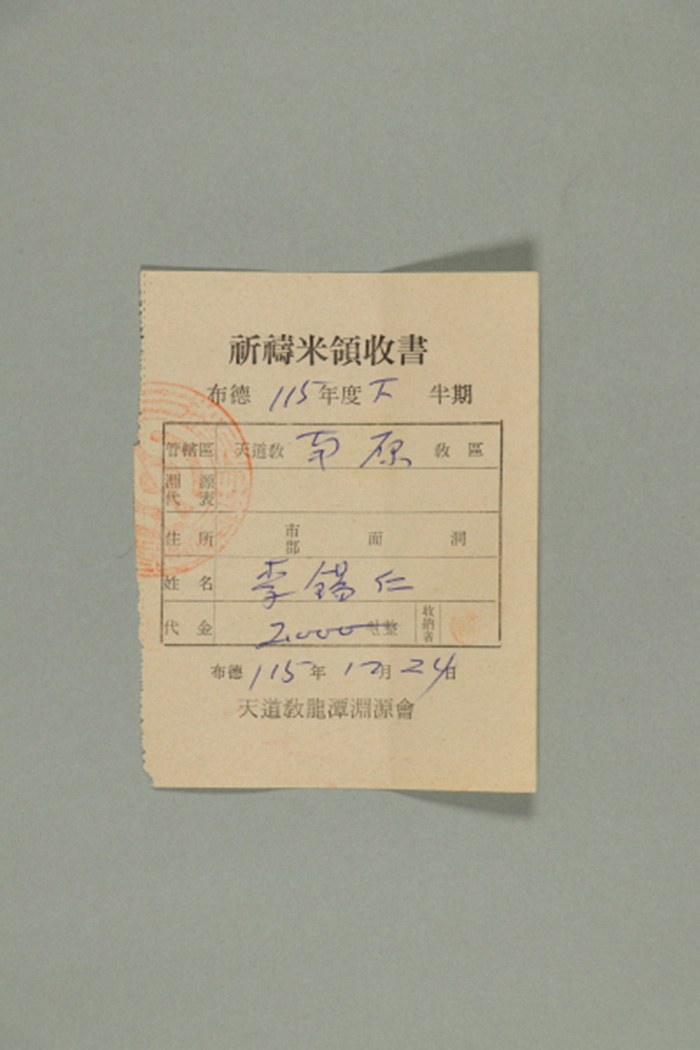 祈禱米領收書
布德 115 年度 下 半期
管轄區 天道敎 南原 敎區
淵源代表
住所 市郡 面 洞
姓名 李錫仁
代金 2,000 원整 收納者
布德 115 年 12 月 24 日
天道敎龍潭淵源會